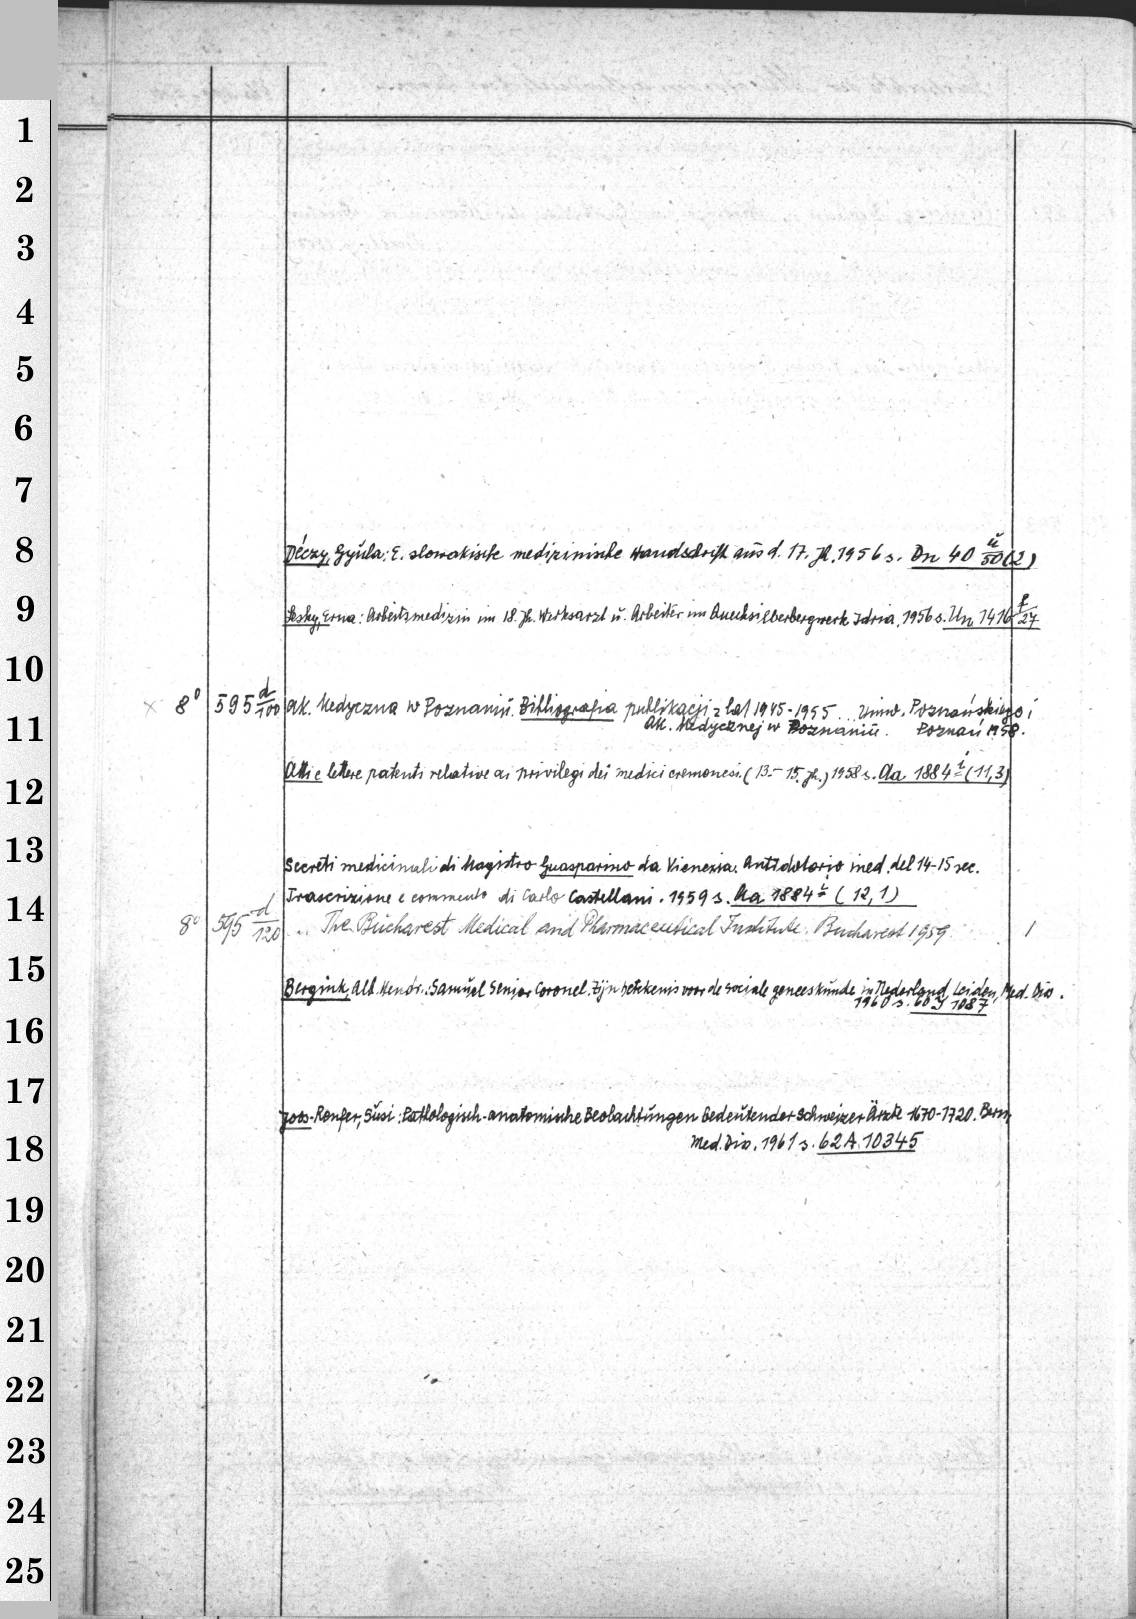 1
2
3
4
5
6
7
8
Déczy, Gyula: E. slowakische medizinische Handschrift aus d. 17. Jh. 1956 s. Dn 40 ü/50 (2)
9
Lesky, Erna: Arbeitsmedizin im 18. Jh. Werksarzt u. Arbeiter im Quecksilberbergwerk Idria. 1956 s. Un 1416 f/27
10
× 8° 595 d/100 Ak. Medyczna w Poznaniu. Bibliografia publikacji z lat 1945-1955 ... Uniw. Poznańskiego i
11
Ak. Medycznej w Poznaniu. Poznań 1958.
12
Atti e lettere patenti relative ai privilegi dei medici cremonesi. (13.-15. Jh.) 1958 s. Aa 1884 i (11,3)
13
Secreti medicinali di Magistro Guasparino da Vienexia. Antidotario ined. del 14-15 sec.
14
Trascrizione e commento di Carlo Castellani. 1959 s. Aa 1884 i (12,1)
8° 595 d/120 .. The Bucharest Medical and Pharmaceutical Institute. Bucharest 1959. 1
15
Bergink, Alb. Hendr.: Samuel Senior Coronel. Zijn betekenis voor de sociale geneeskunde in Nederland. Leiden, Med. Diss.
1960 s. 60 J 1087
16
17
Joss-Renfer, Susi: Pathologisch-anatomische Beobachtungen bedeutender Schweizer Ärzte 1670-1720. Bern,
18
Med. Diss. 1961 s. 62 A 10345
19
20
21
22
23
24
25